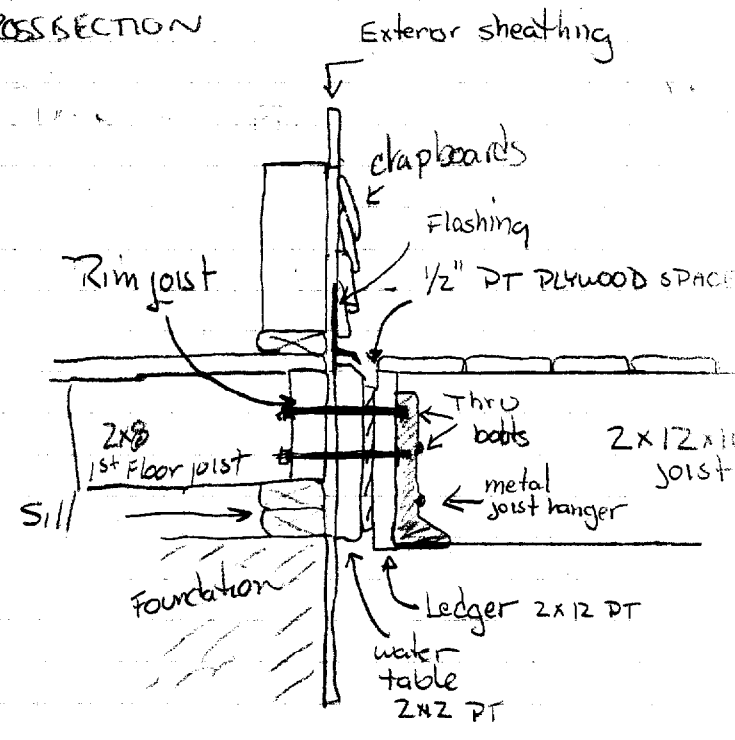 OSSSECTION
Exterior sheathing
clapboards
Flashing
1/2" PT PLYWOOD SPACE
Rim joist
Thru
bolts
2x8
1st Floor joist
2x12x1
joist
metal
joist hanger
Sill
Foundation
Ledger 2x12 PT
water
table
2x2 PT